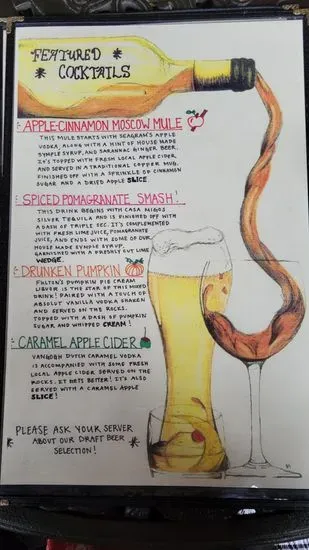 FEATURED
COCKTAILS
APPLE-CINNAMON MOSCOW MULE
THIS MULE STARTS WITH SEAGRAM'S APPLE
VODKA, ALONG WITH A HINT OF HOUSE MADE
SYMPLE SYRUP, AND SARANAC GINGER BEER.
IT'S TOPPED WITH FRESH LOCAL APPLE CIDER,
AND SERVED IN A TRADITIONAL COPPER MUG.
FINISHED OFF WITH A SPRINKLE OF CINNAMON
SUGAR AND A DRIED APPLE SLICE.
SPICED POMAGRANATE SMASH!
THIS DRINK BEGINS WITH CASA NIGOS
SILVER TEQUILA AND IS FINISHED OFF WITH
A DASH OF TRIPLE SEC. IT'S COMPLEMENTED
WITH FRESH LIME JUICE, POMAGRANATE
JUICE, AND ENDS WITH SOME OF OUR
HOUSE MADE SYMPLE SYRUP,
GARNISHED WITH A FRESHLY CUT LIME
WEDGE.
DRUNKEN PUMPKIN
FULTON'S PUMPKIN PIE CREAM
LIQUOR IS THE STAR OF THIS MIXED
DRINK! PAIRED WITH A TOUCH OF
ABSOLUT VANILLA VODKA SHAKEN
AND SERVED ON THE ROCKS.
TOPPED WITH A DASH OF PUMPKIN
SUGAR AND WHIPPED CREAM!
CARAMEL APPLE CIDER
VANGOGH DUTCH CARAMEL VODKA
IS ACCOMPANIED WITH SOME FRESH
LOCAL APPLE CIDER SERVED ON THE
ROCKS. IT GETS BETTER! IT'S ALSO
SERVED WITH A CARAMEL APPLE
SLICE!
PLEASE ASK YOUR SERVER
ABOUT OUR DRAFT BEER
SELECTION!